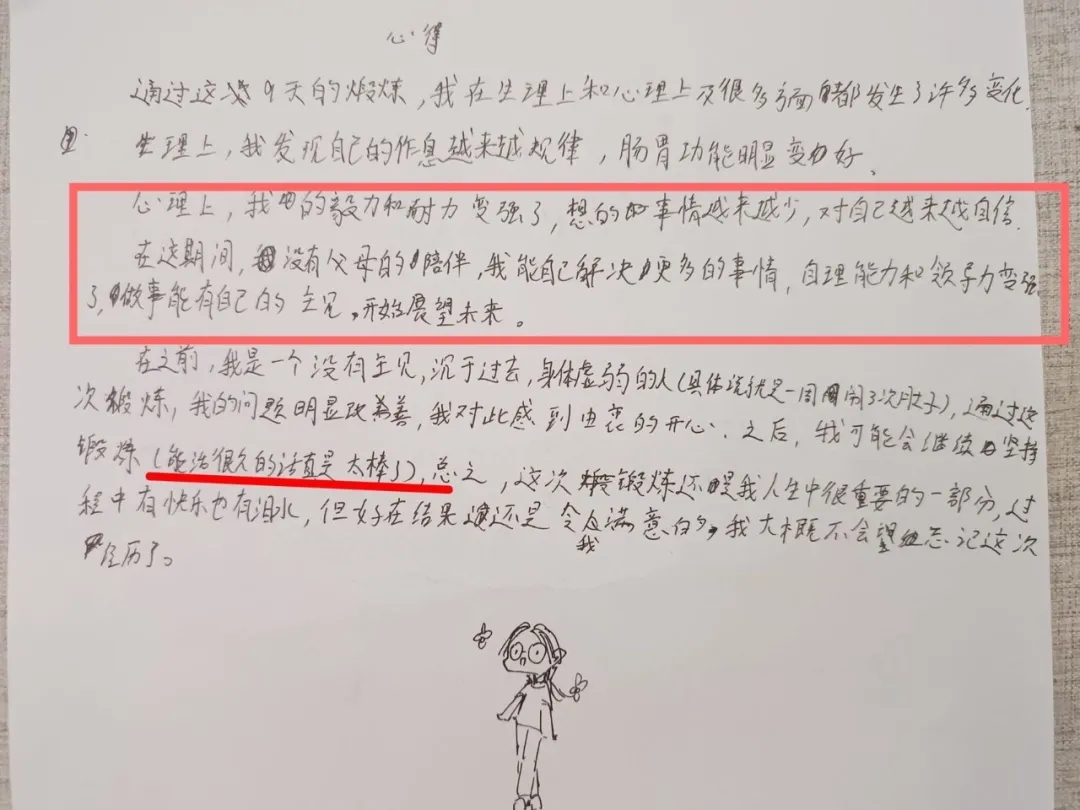 心得
通过这次9天的煅炼，我在生理上和心理上及很多方面都发生了许多变化.
生理上，我发现自己的作息越来越规律，肠胃功能明显变好。
心理上，我的毅力和耐力变强了，想的事情越来越少，对自己越来越自信.
在这期间，没有父母的陪伴，我能自己解决更多的事情，自理能力和领导力变强
了，做事能有自己的主见。开始展望未来。
在之前，我是一个没有主见，沉于过去，身体虚弱的人（具体说就是一周闹了3次肚子），通过这
次煅炼，我的问题明显改善，我对此感到由衷的开心．之后，我可能会继续坚持
锻炼（能活很久的话真是太棒了），总之，这次锻炼还是我人生中很重要的一部分，过
程中有快乐也有泪水，但好在结果还是令我满意的，我大概不会忘记这次
经历了。